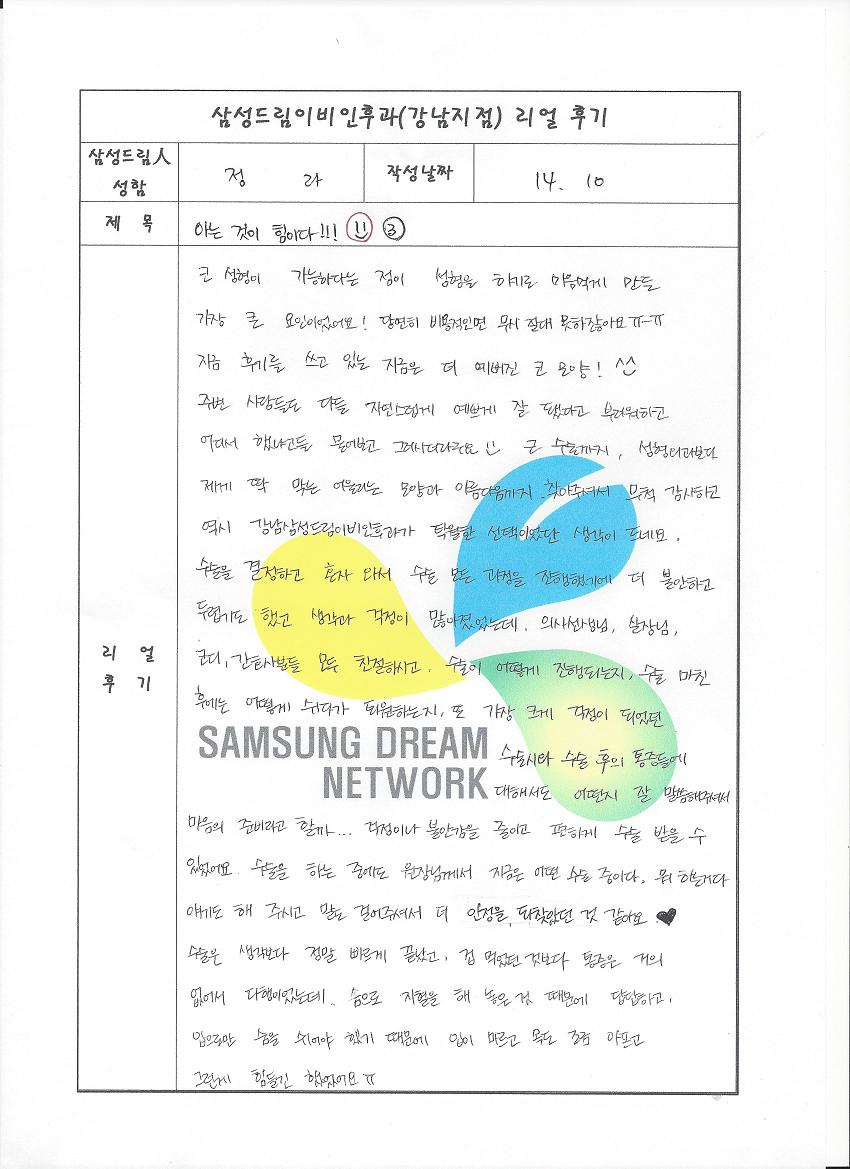 삼성드림이비인후과(강남지점) 리얼 후기
삼성드림人 성함
정 라
작성날짜
14. 10
제 목
아는 것이 힘이다!!! ③
리 얼
후 기
코 성형이 가능하다는 점이 성형을 하기로 마음먹게 만들
가장 큰 요인이었어요! 당연히 비용적인면 무시 절대 못하잖아요ㅠ-ㅠ
지금 후기를 쓰고 있는 지금은 더 예뻐진 코 모양! ^^
주변 사람들도 다들 자연스럽게 예쁘게 잘 됐다고 부러워하고
어디서 했냐고들 물어보고 그러시더라구요 코 수술까지, 성형외과보다
제게 딱 맞는 어울리는 모양과 아름다움까지 찾아주셔서 무척 감사하고
역시 강남삼성드림이비인후과가 탁월한 선택이었단 생각이 드네요.
수술을 결정하고 혼자 와서 수술 모든 과정을 진행했기에 더 불안하고
두렵기도 했고 생각과 걱정이 많아졌었는데, 의사선생님, 실장님,
코디, 간호사분들 모두 친절하시고, 수술이 어떻게 진행되는지, 수술 마친
후에는 어떻게 쉬다가 퇴원하는지, 또 가장 크게 걱정이 되었던
SAMSUNG DREAM
NETWORK
수술시와 수술 후의 통증들에
대해서도 어떤지 잘 말씀해주셔서
마음의 준비라고 할까... 걱정이나 불안감을 줄이고 편하게 수술 받을 수
있었어요. 수술을 하는 중에도 원장님께서 지금은 어떤 수술 중이다, 뭐 하는거다
얘기도 해 주시고 말도 걸어주셔서 더 안정을 되찾았던 것 같아요 ♥
수술은 생각보다 정말 빠르게 끝났고, 겁 먹었던 것보다 통증은 거의
없어서 다행이었는데, 솜으로 지혈을 해 놓은 것 때문에 답답하고,
입으로만 숨을 쉬어야 했기 때문에 입이 마르고 목도 조금 아프고
그런게 힘들긴 했었어요 ㅠ